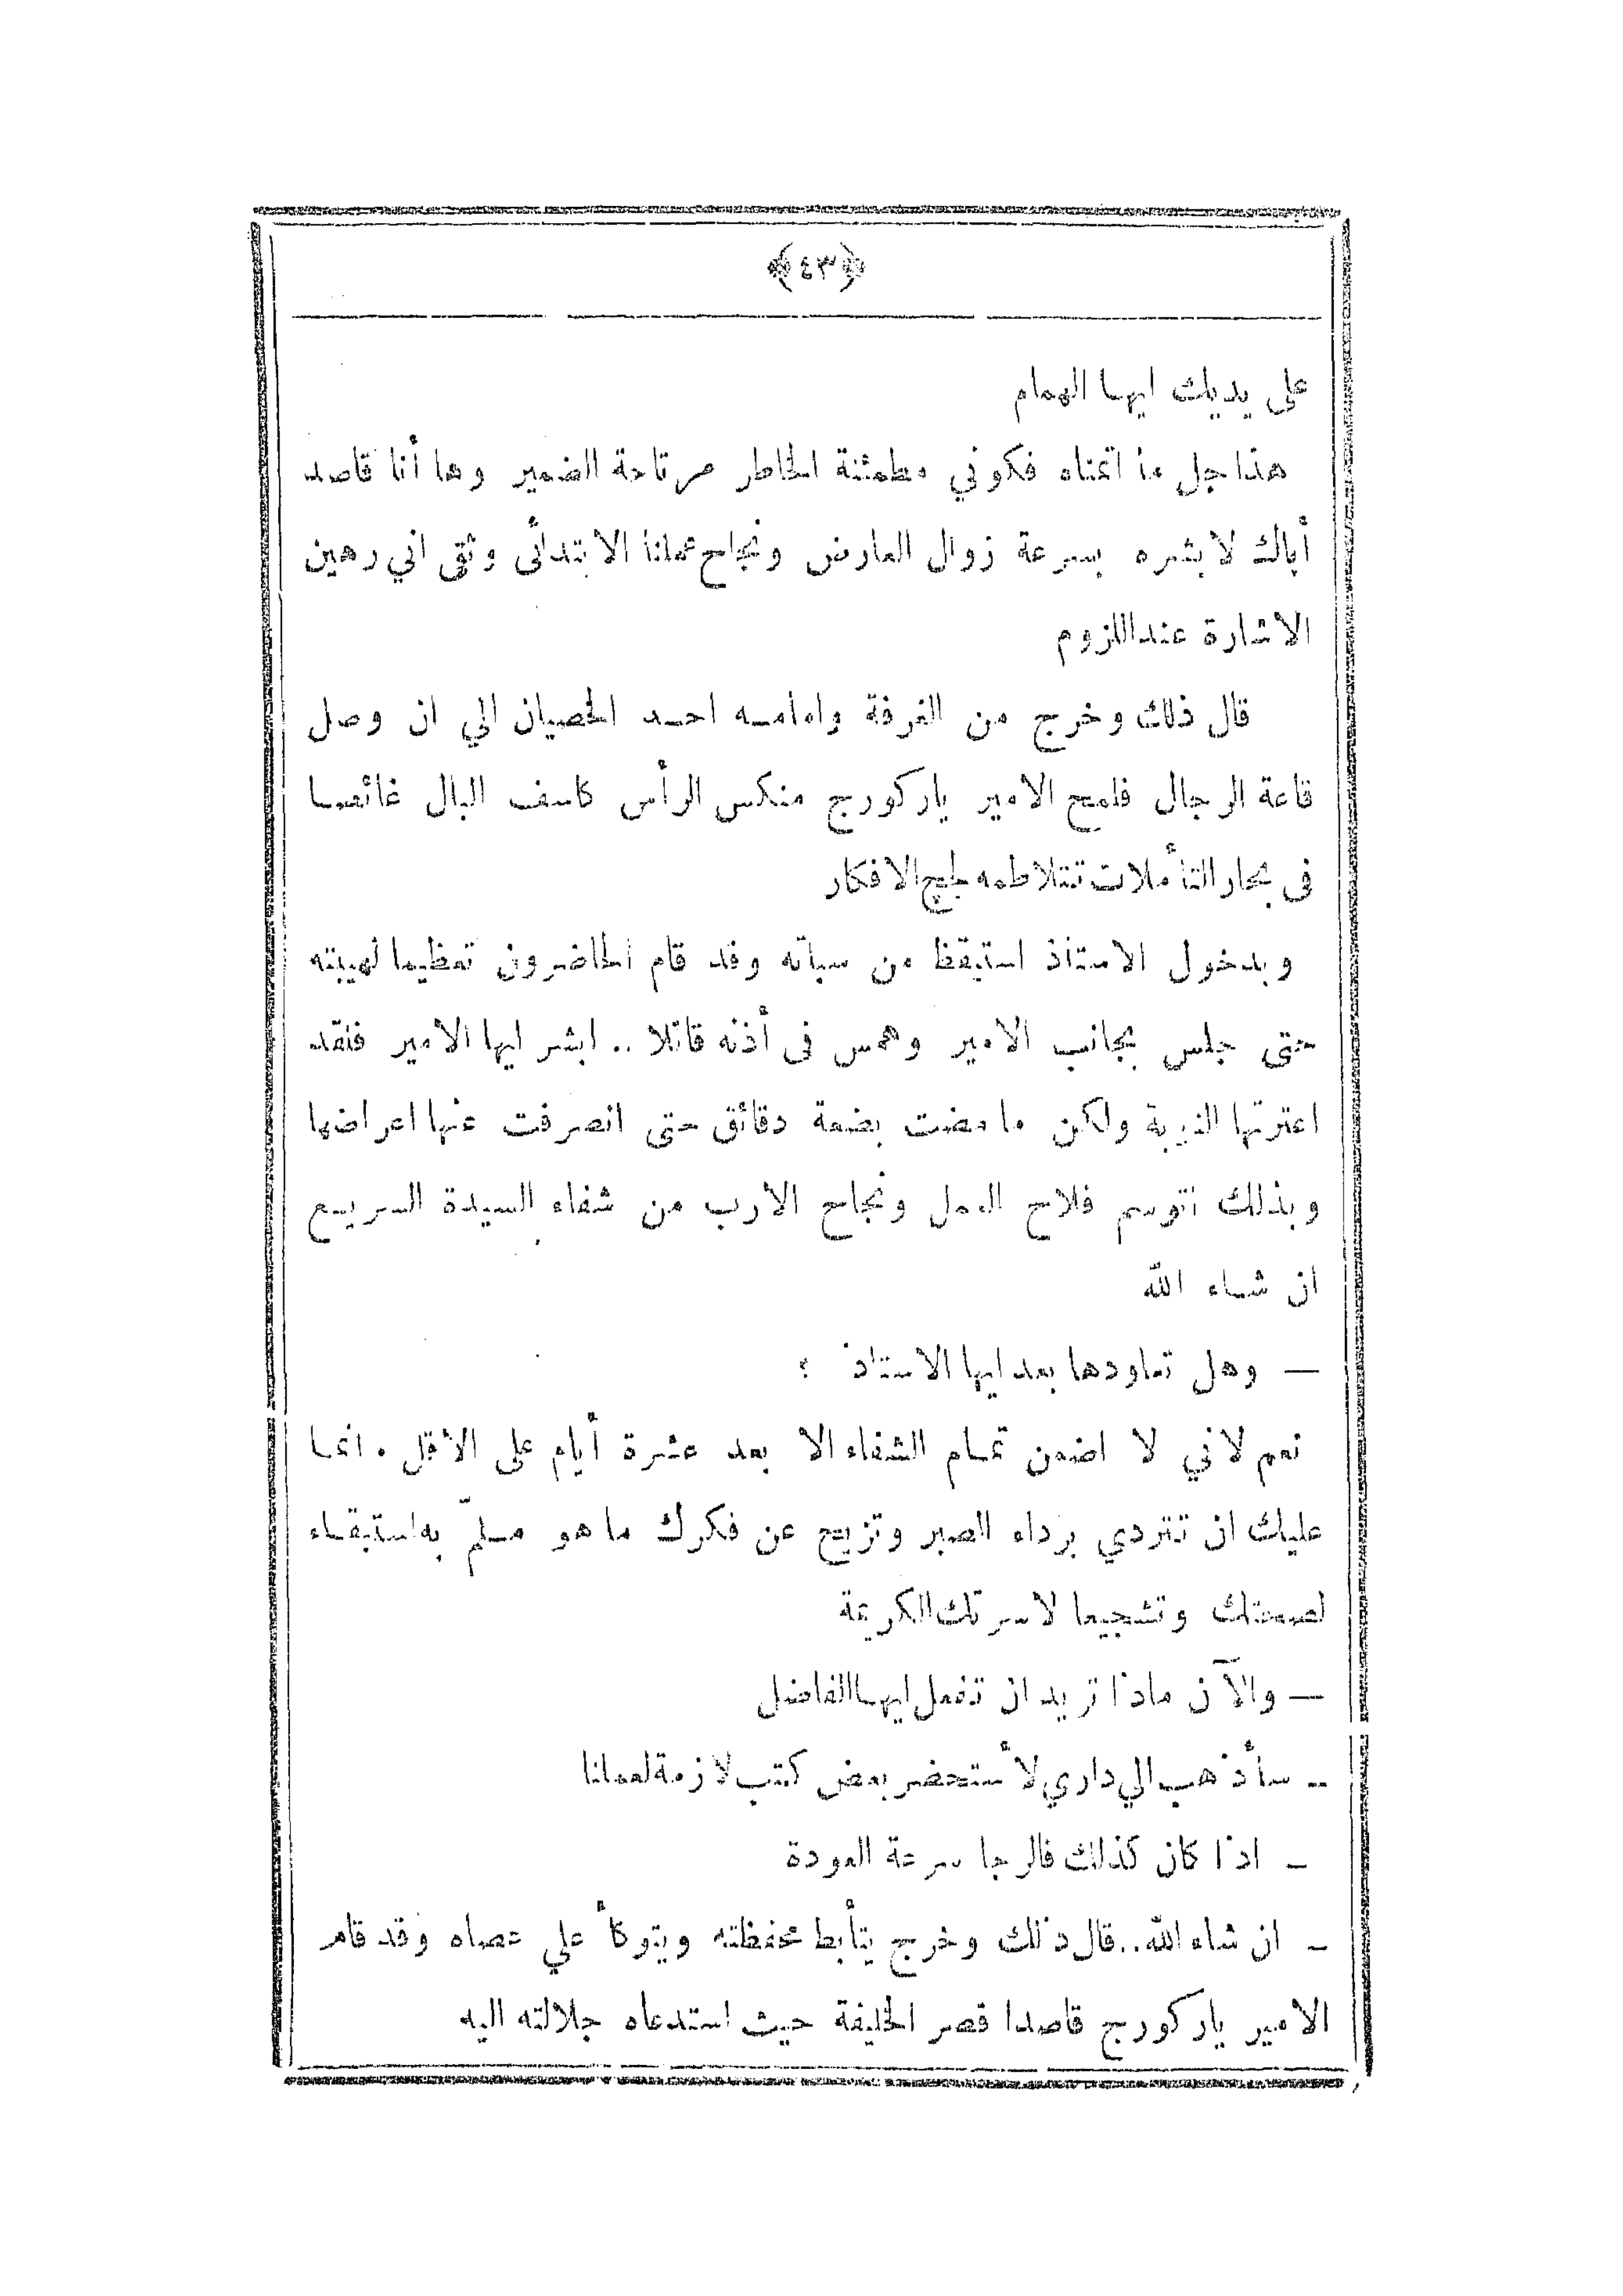 ﴿٤٣﴾
على يديك ايها الهمام
هذا جل ما اتمناه فكوني مطمئنة الخاطر مرتاحة الضمير وها أنا قاصد
أباك لابشره بسرعة زوال العارض ونجاح عملنا الابتدائى وثقى اني رهين
الاشارة عند اللزوم
قال ذلك وخرج من الغرفة وامامه احد الخصيان الي ان وصل
قاعة الرجال فلمح الامير ياركورج منكس الرأس كاسف البال غائصا
فى بحار التأملات تتلاطمه لجج الافكار
وبدخول الاستاذ استيقظ من سباته وقد قام الحاضرون تعظيما لهيبته
حتى جلس بجانب الامير وهمس فى أذنه قائلا .. ابشر ايها الامير فلقد
اعترتها النوبة ولكن ما مضت بضعة دقائق حتى انصرفت عنها اعراضها
وبذلك نتوسم فلاح العمل ونجاح الأرب من شفاء السيدة السريع
ان شاء الله
— وهل تعاودها بعد ايها الاستاذ ؟
نعم لاني لا اضمن تمام الشفاء الا بعد عشرة أيام على الأقل . انما
عليك ان تتردي برداء الصبر وتزيح عن فكرك ما هو مسلمّ به استبقاء
لصحتك وتشجيعا لاسرتك الكريمة
— والآن ماذا تريد ان تفعل ايها الفاضل
- سأذهب الي داري لأستحضر بعض كتب لازمة لعملنا
- اذا كان كذلك فالرجا سرعة العودة
- ان شاء الله .. قال ذلك وخرج يتأبط محفظته ويتوكأ علي عصاه وقد قام
الامير ياركورج قاصدا قصر الخليفة حيث استدعاه جلالته اليه